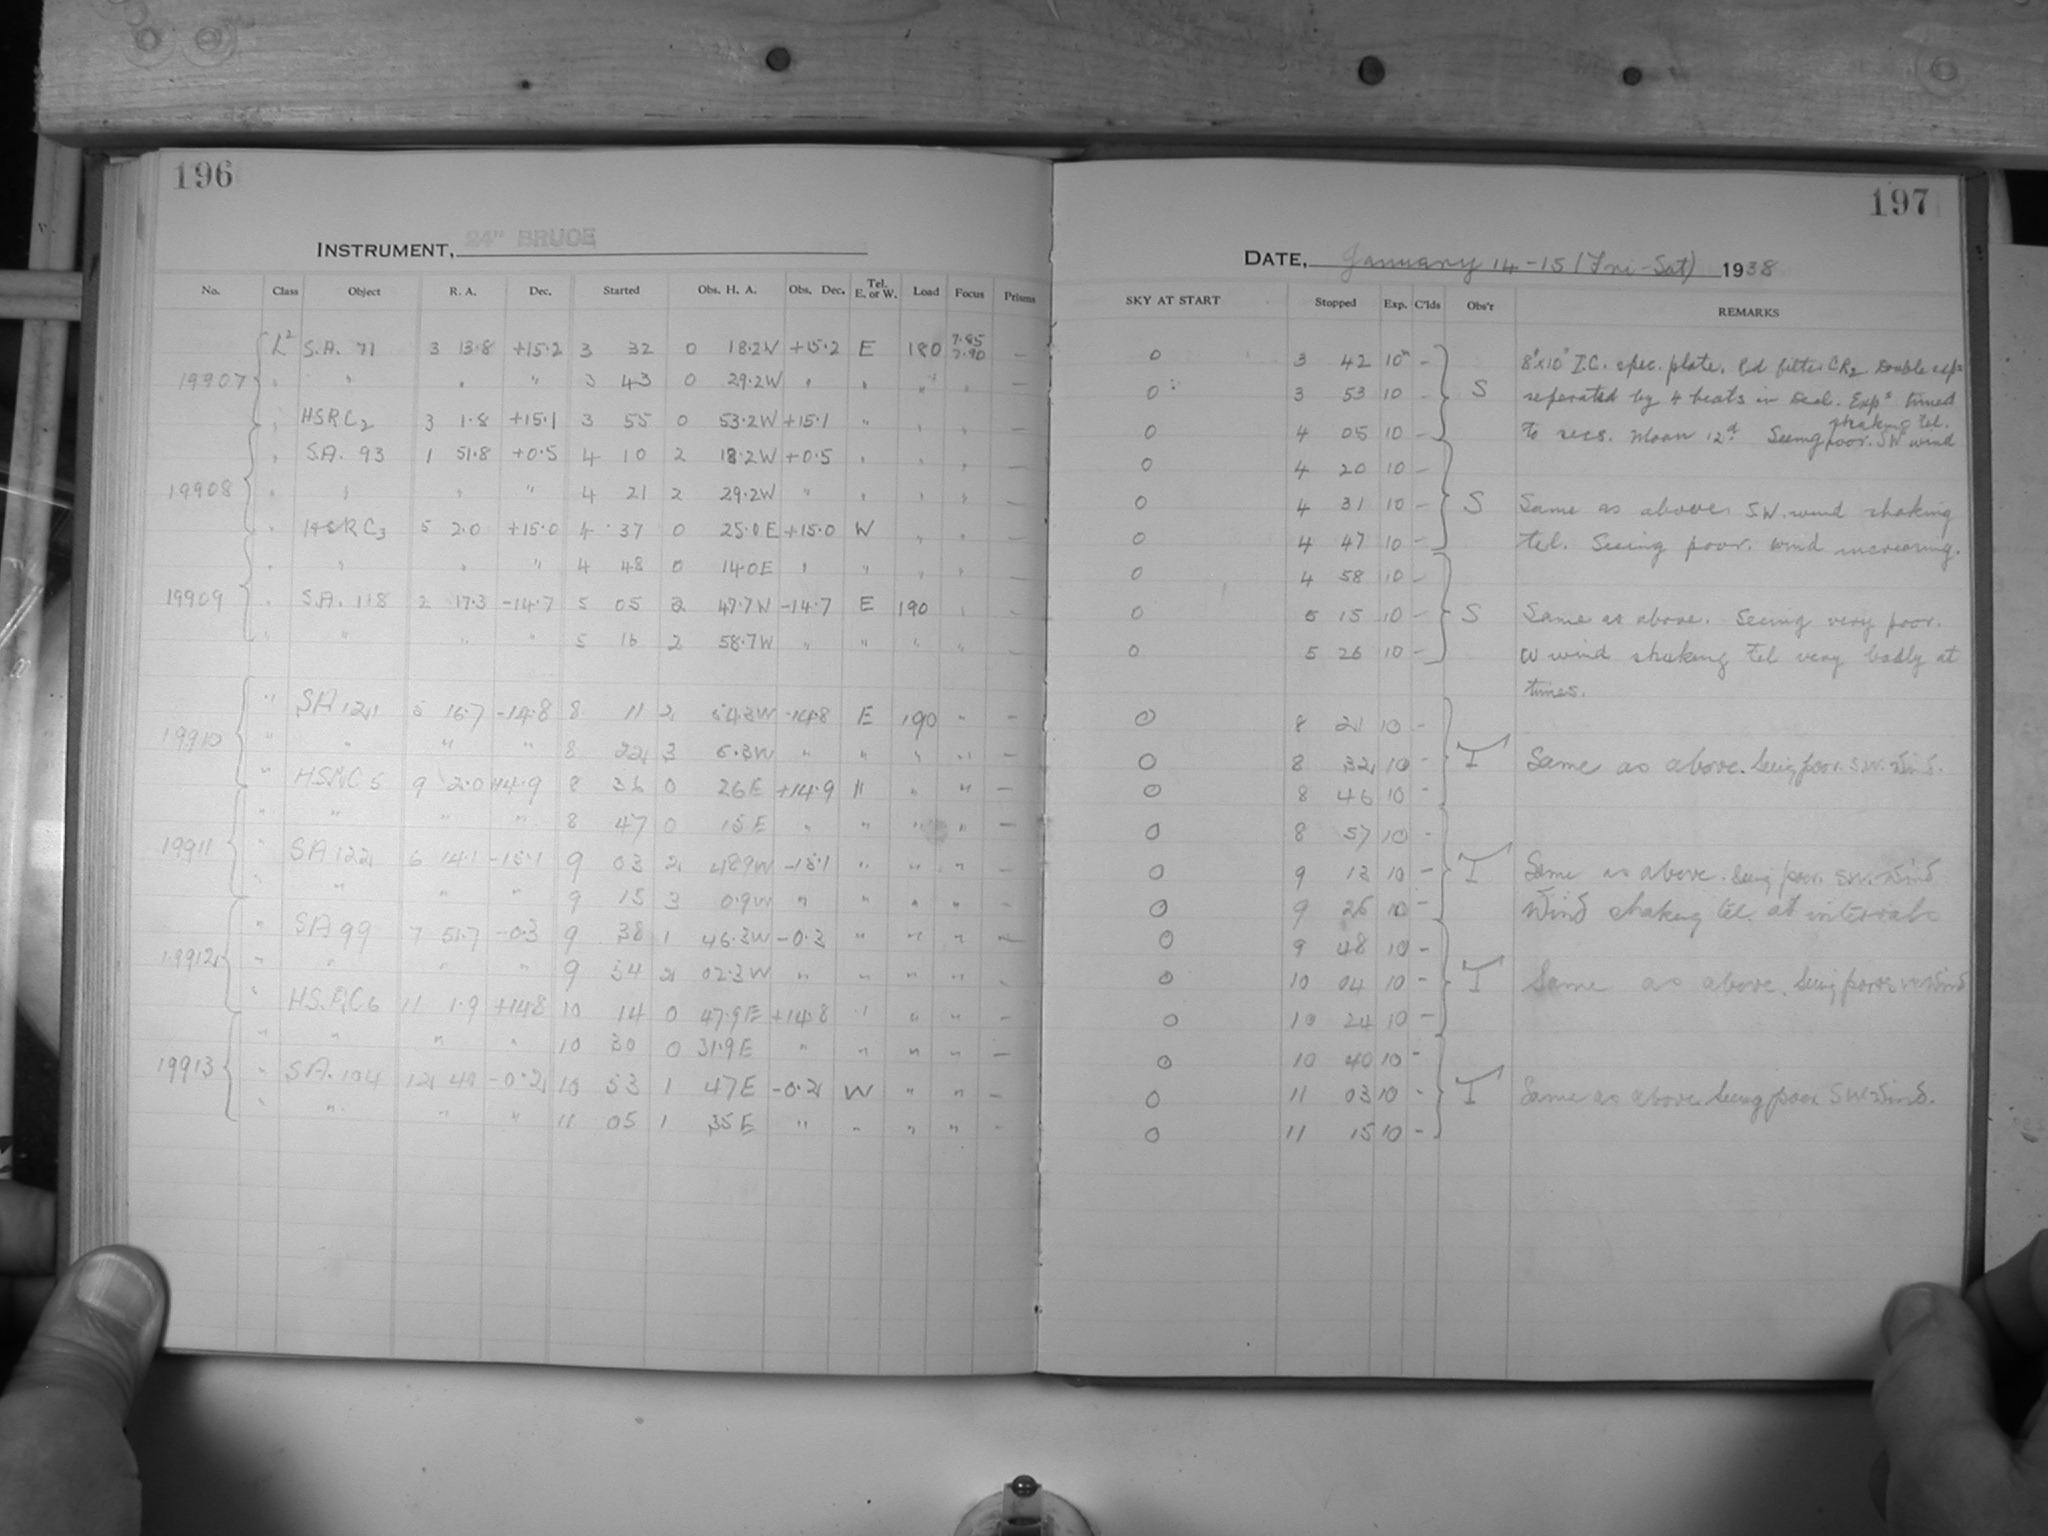 196
INSTRUMENT, 24" BRUCE
No. Class Object R. A. Dec. Started Obs. H. A. Obs. Dec. Tel. E. or W. Load Focus Prisms
L² S.A. 71 3 13.8 +15.2 3 32 0 18.2W +15.2 E 180 7.85 7.90 –
19907 " " " " 3 43 0 29.2W " " " " –
" HSRC₂ 3 1.8 +15.1 3 55 0 53.2W +15.1 " " " –
" S.A. 93 1 51.8 +0.5 4 10 2 18.2W +0.5 " " " –
19908 " " " " 4 21 2 29.2W " " " " –
" HSRC₃ 5 2.0 +15.0 4 37 0 25.0E +15.0 W " " –
" " " " 4 48 0 14.0E " " " " –
19909 " S.A. 118 2 17.3 -14.7 5 05 2 47.7W -14.7 E 190 " –
" " " " 5 16 2 58.7W " " " " –
" SA 121 5 16.7 -14.8 8 11 2 54.3W -14.8 E 190 " –
19910 " " " " 8 22 3 5.3W " " " " –
" 5 9 2.0 +14.9 8 36 0 26E +14.9 " " " –
" " " " 8 47 0 15E " " " " –
19911 " SA 122 6 14.1 -15.1 9 03 2 48.9W -15.1 " " " –
" " " " 9 15 3 0.9W " " " " –
" SA 99 7 51.7 -0.3 9 38 1 46.3W -0.3 " " " –
19912 " " " " 9 54 2 02.3W " " " " –
" HS.RC6 11 1.9 +14.8 10 14 0 47.9E +14.8 " " " –
" " " " 10 30 0 31.9E " " " " –
19913 " SA.104 12 40 -0.2 10 53 1 47E -0.2 W " " –
" " " " 11 05 1 35E " " " " –
197
DATE, January 14-15 (Fri-Sat) 1938
SKY AT START Stopped Exp. C'lds Obs'r REMARKS
0 3 42 10ᵐ – 8"x10" I.C. spec. plate. Rd filter CR₂ Double exps
0 3 53 10 – S separated by 4 beats in Decl. Expˢ timed
shaking tel.
0 4 05 10 – to secs. Moon 12ᵈ Seeing poor. SW wind
0 4 20 10 –
0 4 31 10 – S Same as above. S.W. wind shaking
0 4 47 10 – tel. Seeing poor. Wind increasing.
0 4 58 10 –
0 5 15 10 – S Same as above. Seeing very poor.
0 5 26 10 – W wind shaking tel very badly at
times.
0 8 21 10 –
0 8 32 10 – I Same as above. Seeing poor. S.W. Wind.
0 8 46 10 –
0 8 57 10 –
0 9 13 10 – I Same as above. Seeing poor. S.W. Wind
0 9 25 10 – Wind shaking tel. at intervals
0 9 48 10 –
0 10 04 10 – I Same as above. Seeing poor Wind
0 10 24 10 –
0 10 40 10 –
0 11 03 10 – I Same as above Seeing poor S.W. Wind.
0 11 15 10 –